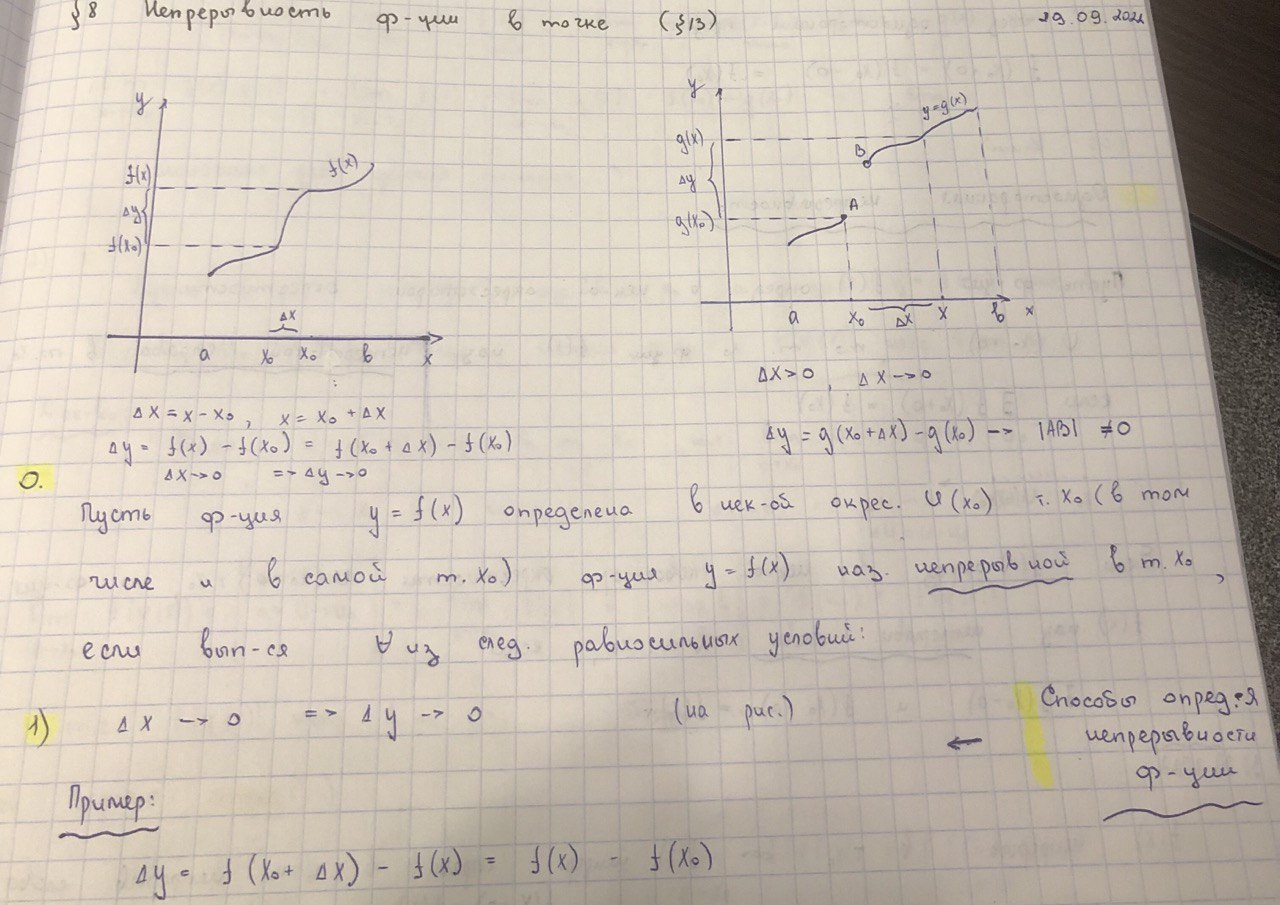 §8 Непрерывность ф-ции в точке (§13) 29.09.2021
y
f(x)
Δy
f(x₀)
f(x)
Δx
a x₀ x₀ b x
y
g(x)
Δy
g(x₀)
y=g(x)
B
A
a x₀ Δx x b x
Δx = x - x₀, x = x₀ + Δx
Δy = f(x) - f(x₀) = f(x₀ + Δx) - f(x₀)
Δx → 0 => Δy → 0
Δx > 0, Δx → 0
Δy = g(x₀ + Δx) - g(x₀) → |AB| ≠ 0
О.
Пусть ф-ция y = f(x) определена в нек-ой окрес. U(x₀) т. x₀ (в том
числе и в самой т. x₀) ф-ция y = f(x) наз. непрерывной в т. x₀,
если вып-ся ∀ из след. равносильных условий:
1) Δx → 0 => Δy → 0 (на рис.)
← Способы опред-я
непрерывности
ф-ции
Пример:
Δy = f(x₀ + Δx) - f(x) = f(x) - f(x₀)